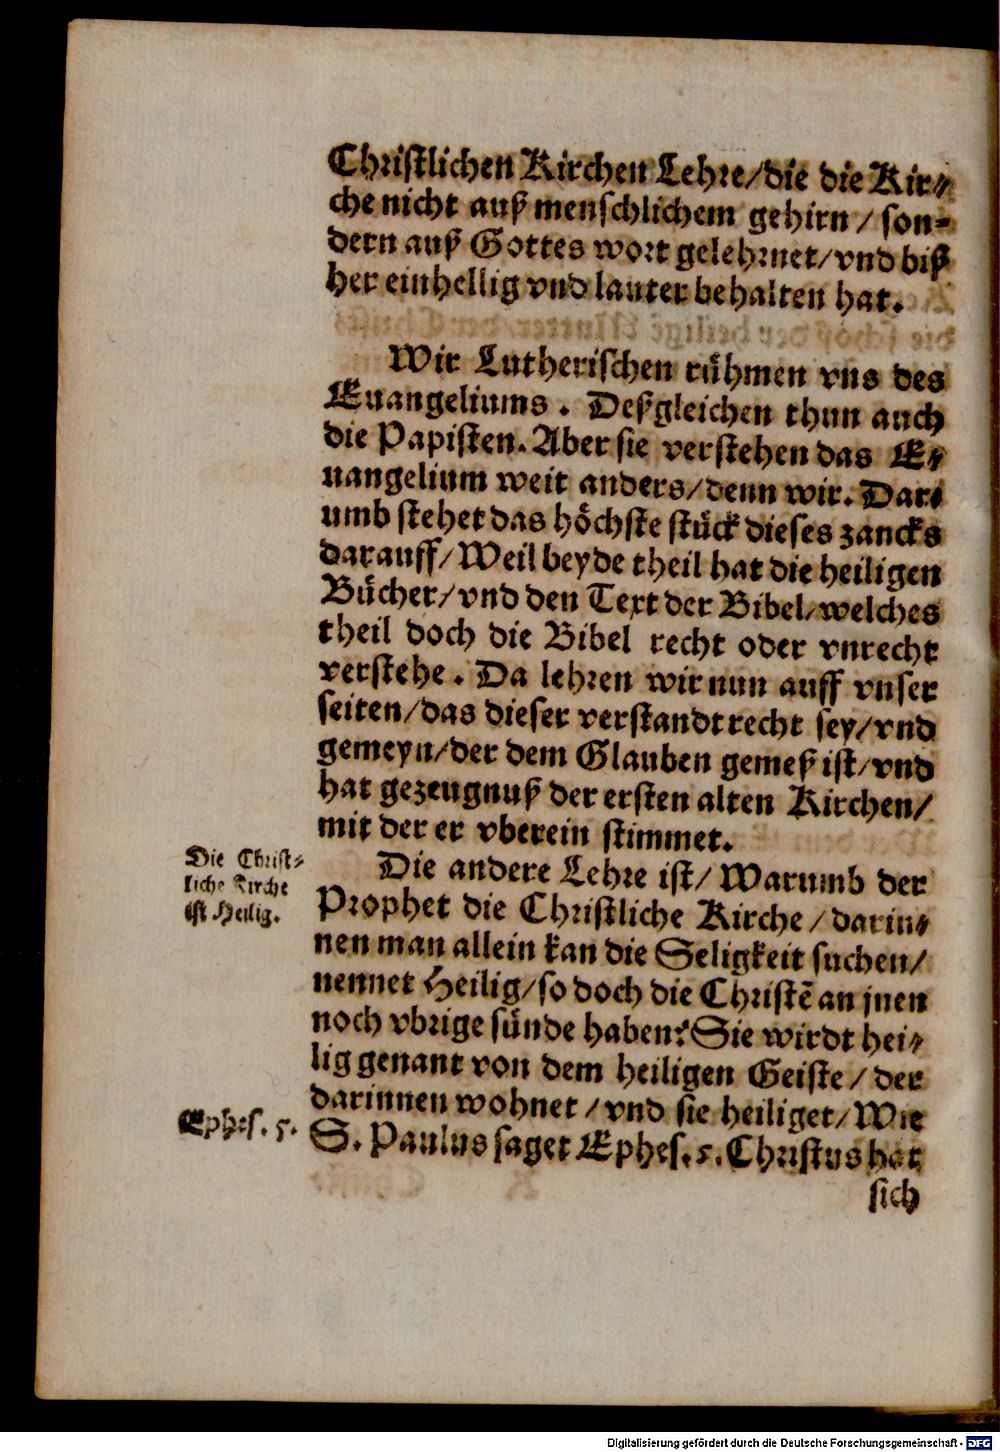 Christlichen Kirchen Lehre/die die Kir-
che nicht auß menschlichem gehirn/son-
dern auß Gottes wort gelehrnet/vnd biß
her einhellig vnd lauter behalten hat.
Wir Lutherischen rühmen vns des
Euangeliums. Deßgleichen thun auch
die Papisten. Aber sie verstehen das E-
uangelium weit anders/denn wir. Dar-
umb stehet das höchste stück dieses zancks
darauff/Weil beyde theil hat die heiligen
Bücher/vnd den Text der Bibel/welches
theil doch die Bibel recht oder vnrecht
verstehe. Da lehren wir nun auff vnser
seiten/das dieser verstandt recht sey/vnd
gemeyn/der dem Glauben gemeß ist/vnd
hat gezeugnuß der ersten alten Kirchen/
mit der er vberein stimmet.
Die Christ-
liche Kirche
ist Heilig.
Die andere Lehre ist/Warumb der
Prophet die Christliche Kirche/darin-
nen man allein kan die Seligkeit suchen/
nennet Heilig/so doch die Christē an jnen
noch vbrige sünde haben? Sie wirdt hei-
lig genant von dem heiligen Geiste/der
darinnen wohnet/vnd sie heiliget/Wie
Ephes. 5.
S. Paulus saget Ephes. 5. Christus hat
sich
Digitalisierung gefördert durch die Deutsche Forschungsgemeinschaft - DFG